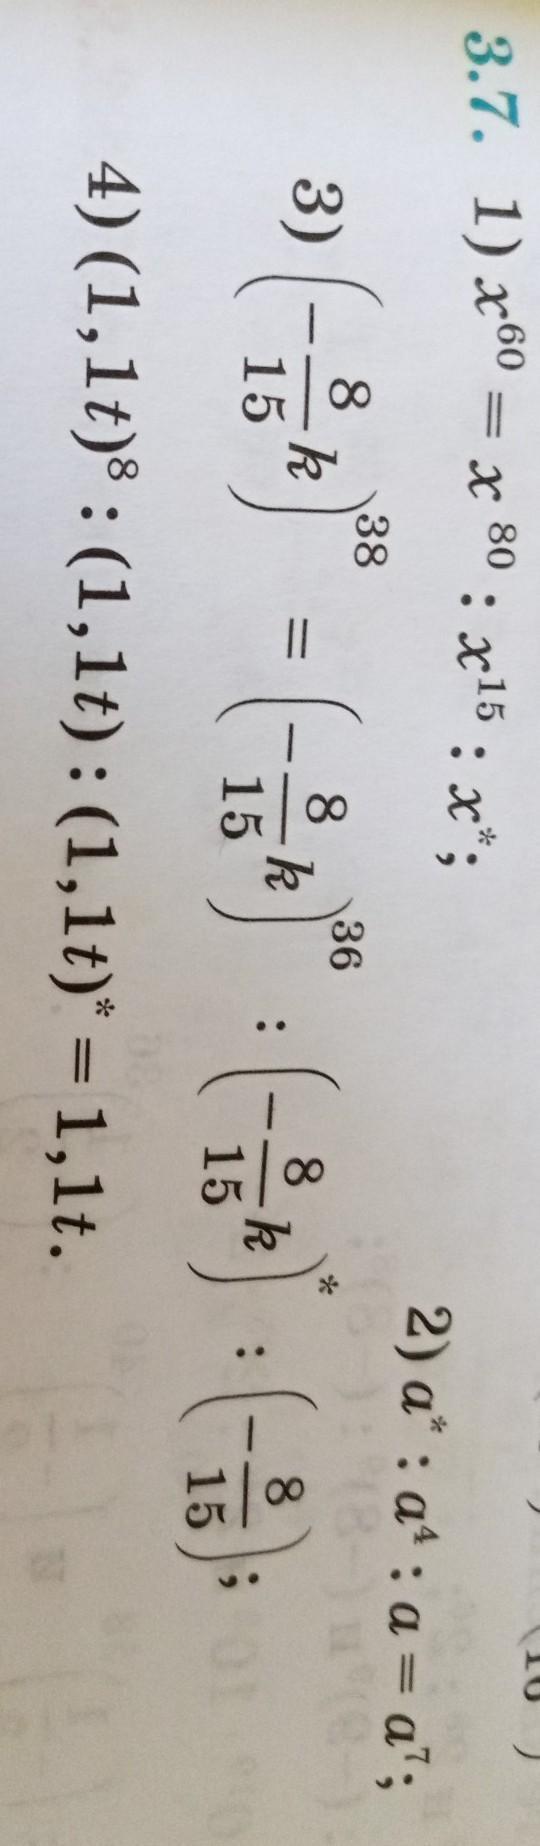 3.7. 1) x⁶⁰ = x⁸⁰ : x¹⁵ : x*; 2) a* : a⁴ : a = a⁷;
3) (-8/15 k)³⁸ = (-8/15 k)³⁶ : (-8/15 k)* : (-8/15);
4) (1,1t)⁸ : (1,1t) : (1,1t)* = 1,1t.